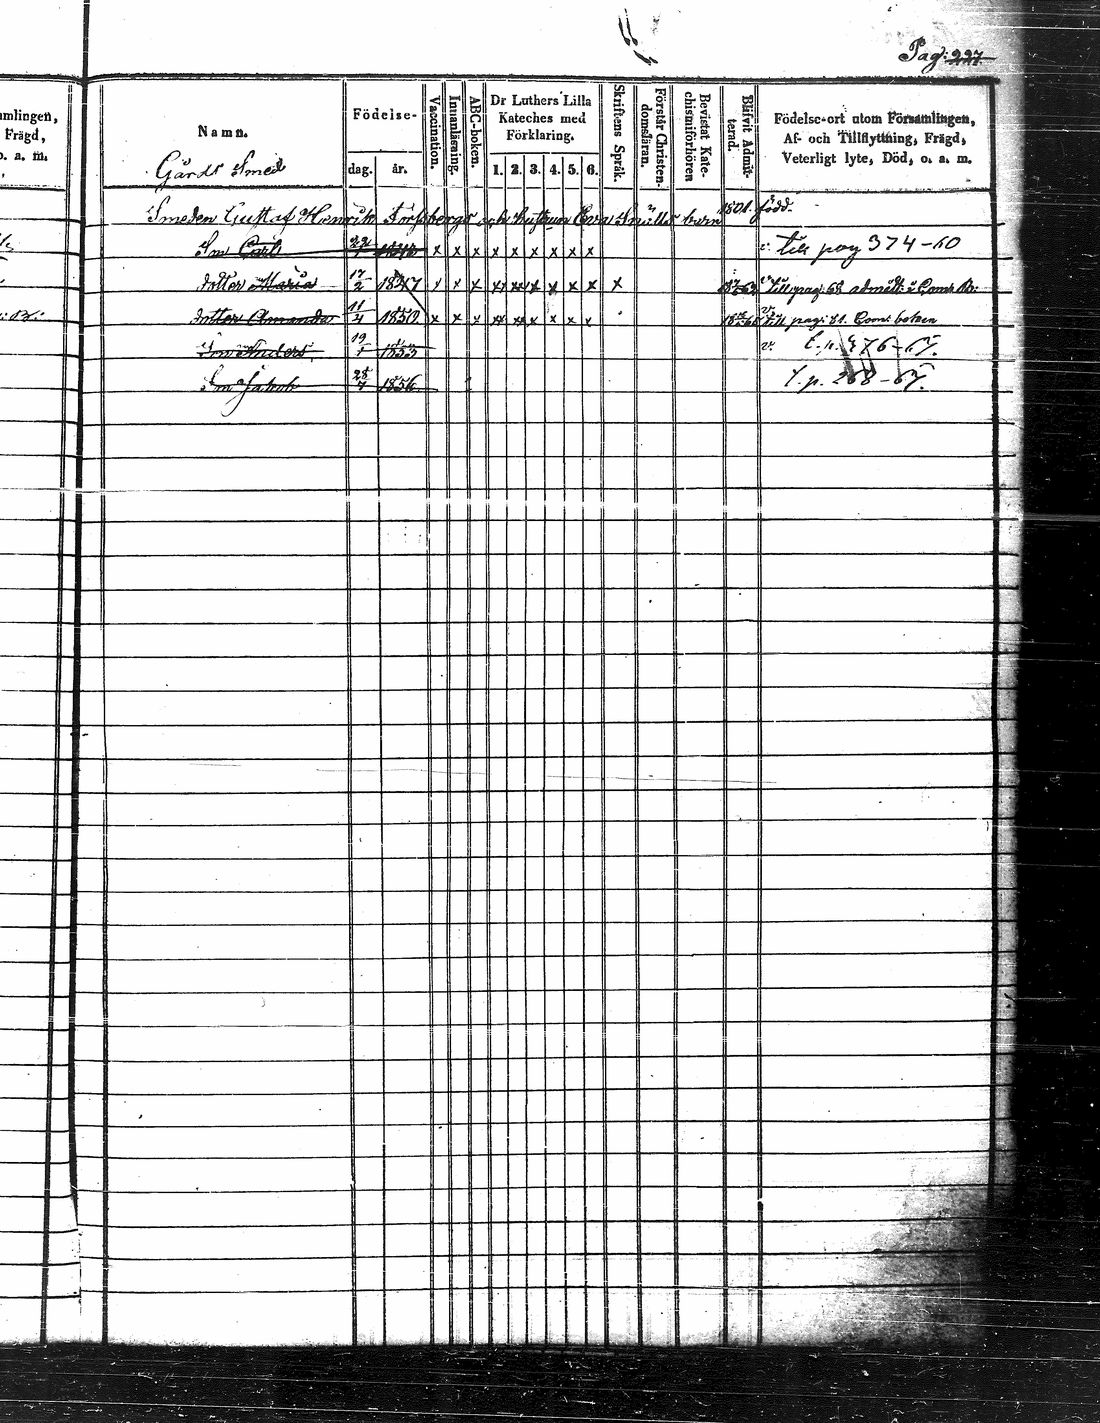 Pag: 227
mlingen,
Frägd,
o. a. m.
Namn.
Gårds Smed
Födelse-
dag.
år.
Vaccination.
Innanläsning.
ABC-boken.
Dr Luthers Lilla
Kateches med
Förklaring.
1. 2. 3. 4. 5. 6.
Skriftens Språk.
Förstår Christen-
domsläran.
Bevistat Kate-
chismiförhören
Blifvit Admit-
terad.
Födelse-ort utom Församlingen,
Af- och Tillflyttning, Frägd,
Veterligt lyte, Död, o. a. m.
Smeden Gustaf Henrik Forssbergs och hustrun Eva barn född.
Son Carl 22/1 x x x x x x x x x till pag 374-60
dotter Maria 17/2 1847 x x x xx xxx x x x x x till pag: 68 admitt: i Com: B:
dotter Amanda 11/4 1850 x x x xx xx x x x x till pag: 81. Com: boken
Son Anders 19/1 1853 t. p. 476-67.
Son Jakob 25/7 1856 t. p. 268-67.